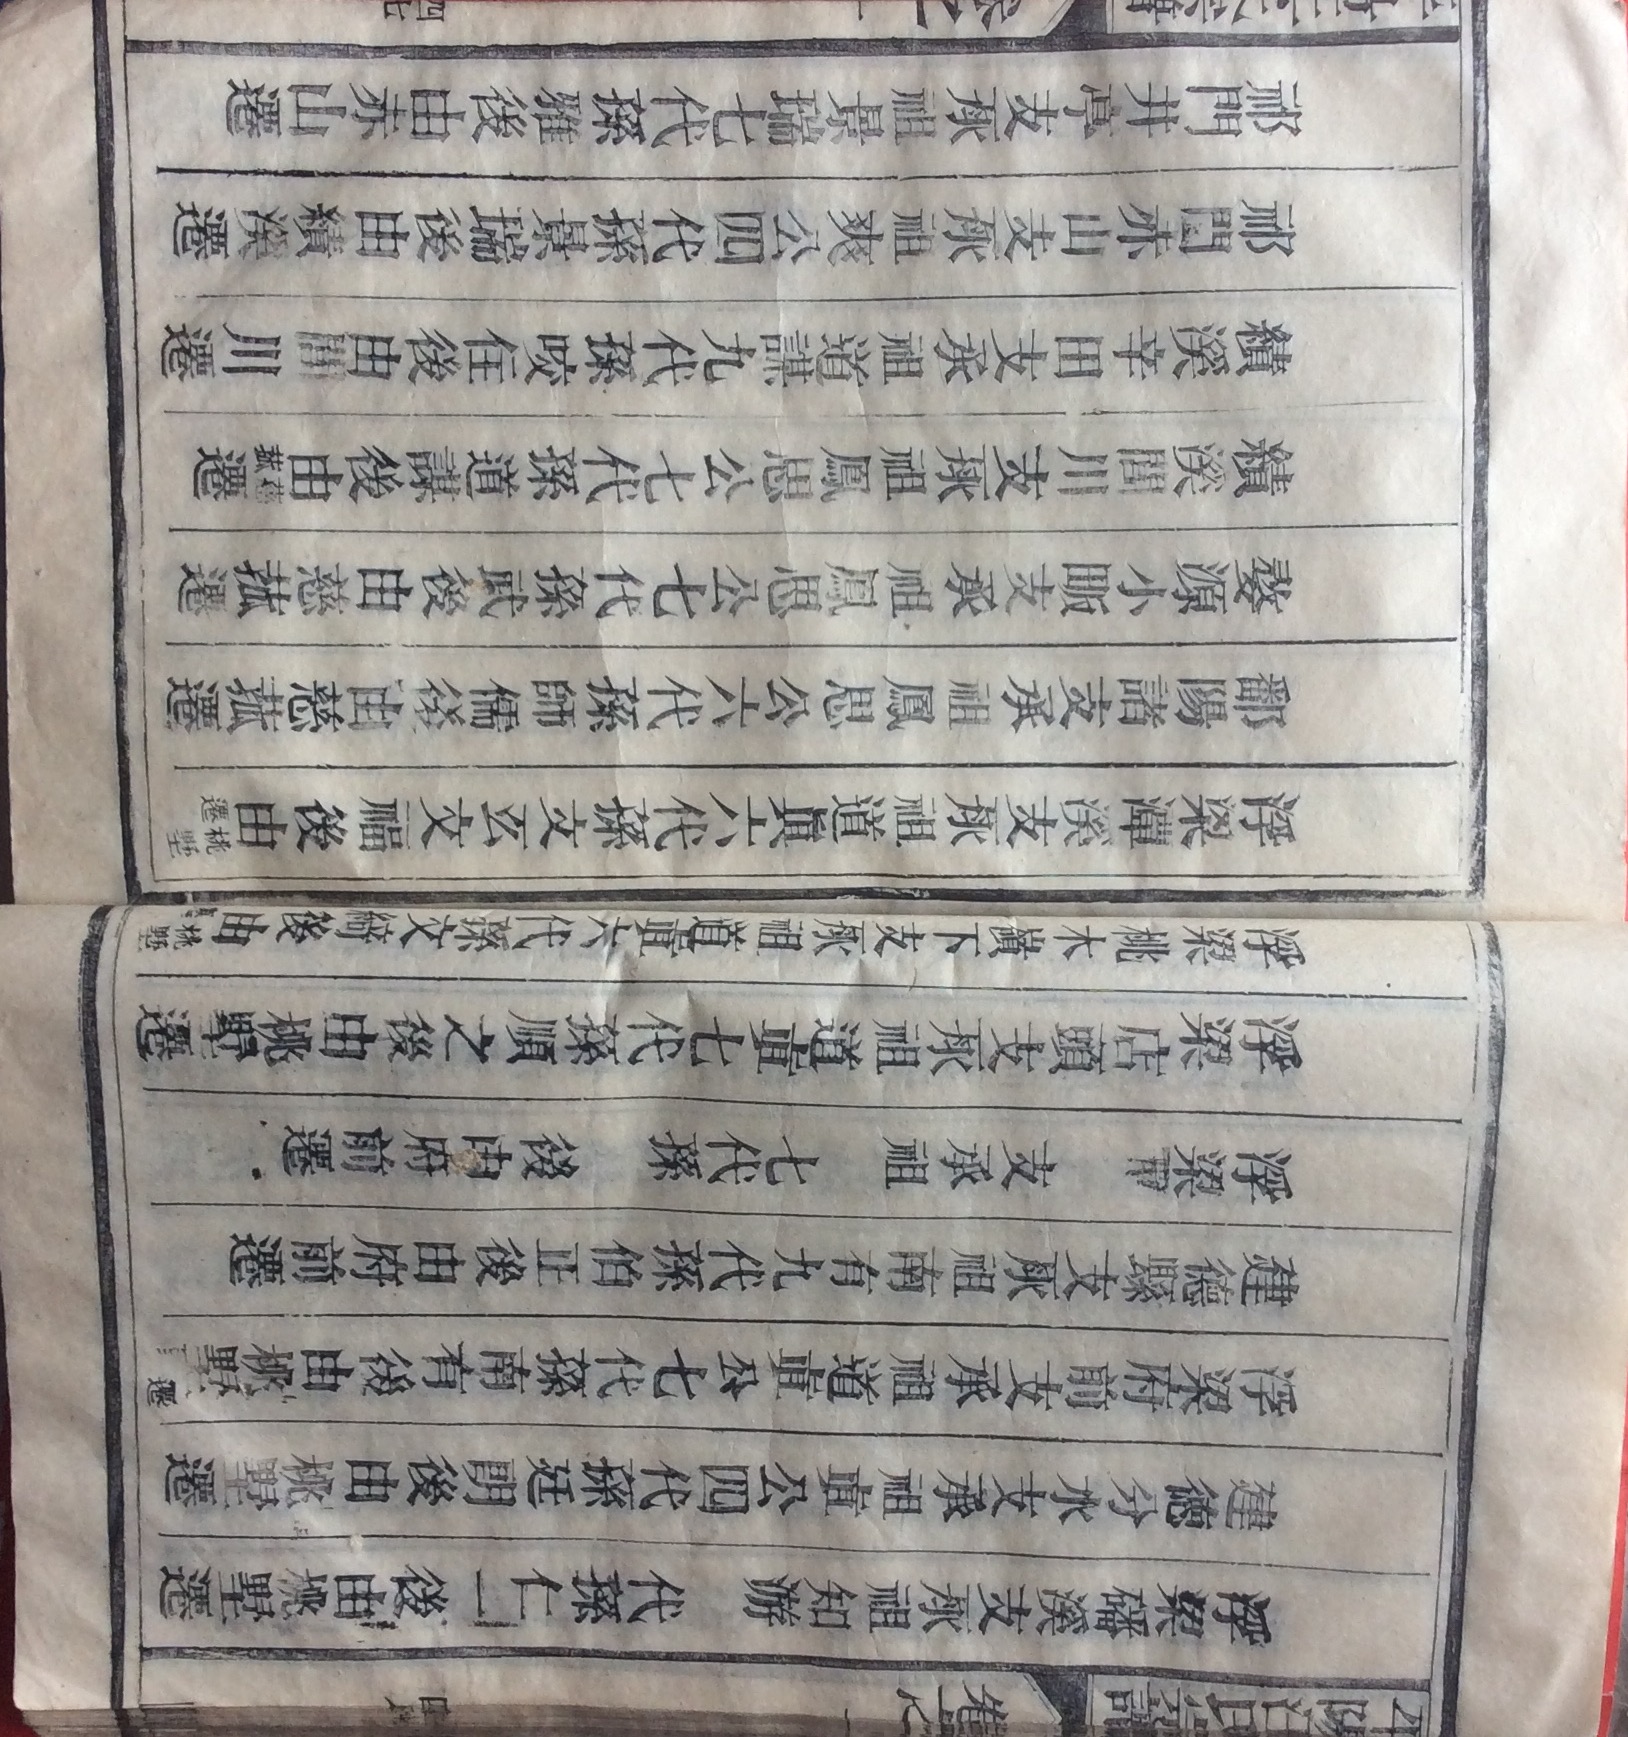 平陽汪氏宗譜 卷一
浮梁磻溪支承祖知游 代孫仁一後由桃墅遷
建德分水支承祖貞公四代孫廷閏後由桃墅遷
浮梁府前支承祖道重公七代孫南有後由桃墅遷
建德縣支承祖南有九代孫伯正後由府前遷
浮梁 支承祖 七代孫 後由府前遷
浮梁店頭支承祖道重七代孫順之後由桃墅遷
浮梁桃木嶺下支承祖道重六代孫文 後由桃墅
浮梁潭溪支承祖道真八代孫文玄文福後由桃墅遷
鄱陽諸支承祖鳳思公六代孫師儒後由慈菰遷
婺源小畈支承祖鳳思公七代孫武後由慈菰遷
績溪閭川支承祖鳳思公七代孫道謀後由慈菰遷
績溪辛田支承祖道謀九代孫咬住後由閭川遷
祁門赤山支承祖爽公四代孫景瑞後由績溪遷
祁門井亭支承祖景瑞七代孫雅後由赤山遷